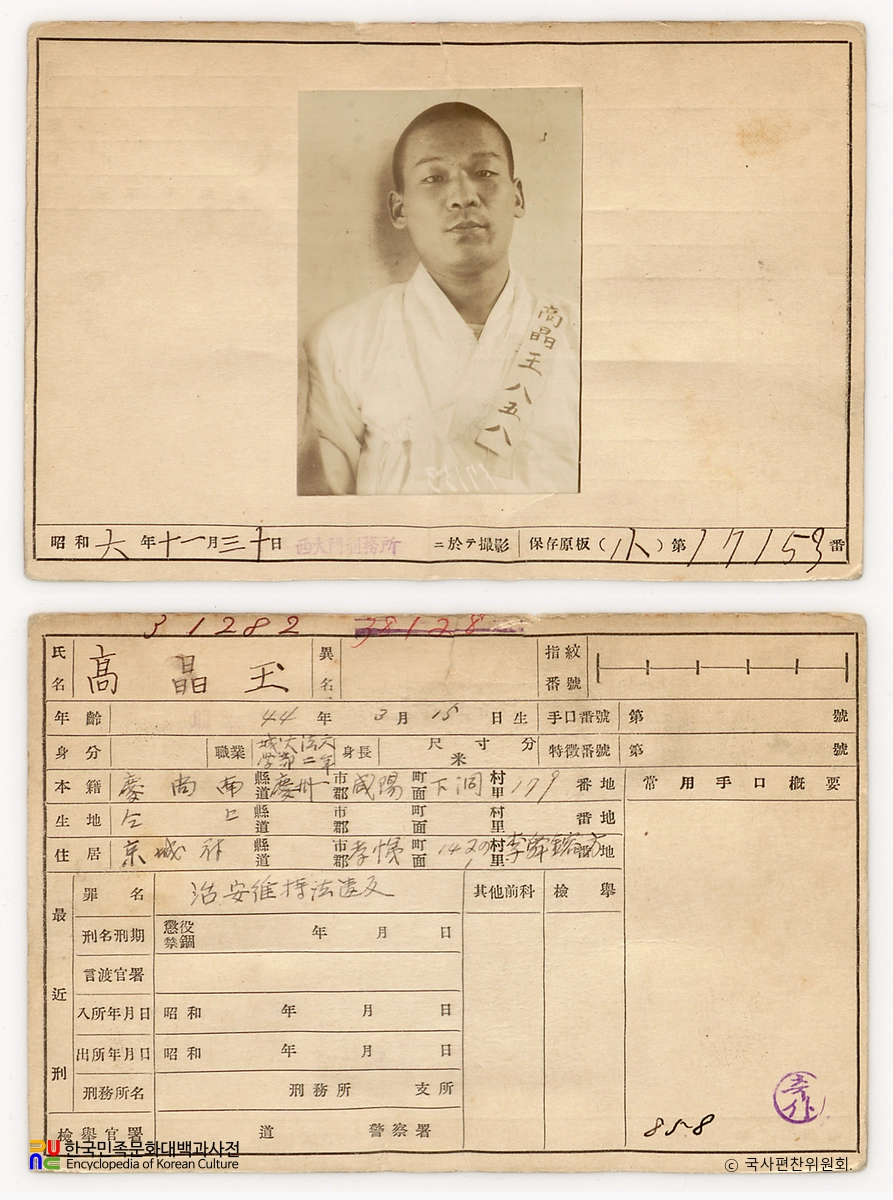 高晶玉 八五八
昭和六年十一月三十日 西大門刑務所 ニ於テ撮影 保存原板( )第17153番
31282 38128
氏名 高晶玉 異名 指紋番號
年齡 44年3月15日生 手口番號 第 號
身分 職業 城大法文學部二年 身長 尺寸分 米 特徵番號 第 號
本籍 慶尚南 縣道 市郡 咸陽 町面 下洞 村里 179 番地 常用手口槪要
生地 仝上 縣道 市郡 町面 村里 番地
住居 京城府 縣道 市郡 孝悌 町面 村里 番地
最近刑
罪名 治安維持法違反 其他前科 檢擧
刑名刑期 懲役 禁錮 年 月 日
言渡官署
入所年月日 昭和 年 月 日
出所年月日 昭和 年 月 日
刑務所名 刑務所 支所
檢擧官署 道 警察署
858
한국민족문화대백과사전
Encyclopedia of Korean Culture
© 국사편찬위원회.